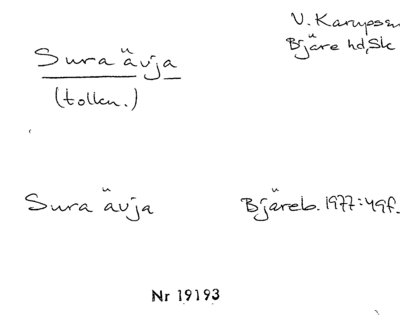 V. Karupssn
Bjäre hd, Sk
Sura ävja
(tolkn.)
Sura ävja Bjäreb. 1977:49f.
Nr 19193